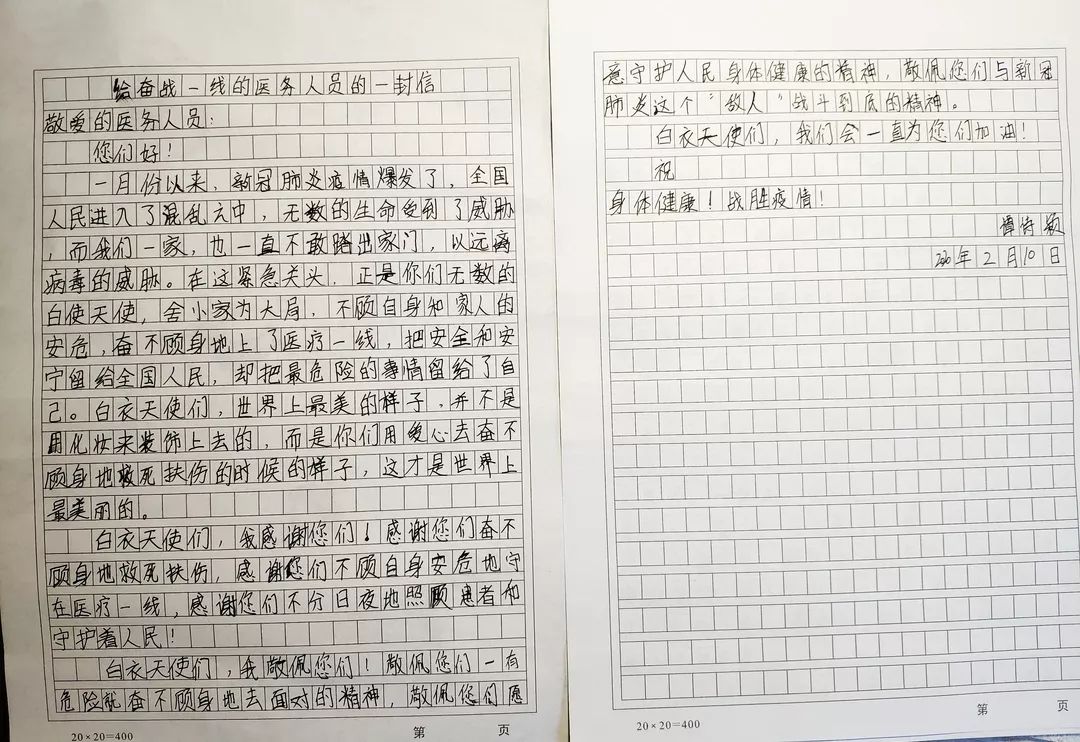 给奋战一线的医务人员的一封信
敬爱的医务人员：
您们好！
一月份以来，新冠肺炎疫情爆发了，全国
人民进入了混乱之中，无数的生命受到了威胁
，而我们一家，也一直不敢踏出家门，以远离
病毒的威胁。在这紧急关头，正是你们无数的
白使天使，舍小家为大局，不顾自身和家人的
安危，奋不顾身地上了医疗一线，把安全和安
宁留给全国人民，却把最危险的事情留给了自
己。白衣天使们，世界上最美的样子，并不是
用化妆来装饰上去的，而是你们用爱心去奋不
顾身地救死扶伤的时候的样子，这才是世界上
最美丽的。
白衣天使们，我感谢您们！感谢您们奋不
顾身地救死扶伤，感谢您们不顾自身安危地守
在医疗一线，感谢您们不分日夜地照顾患者和
守护着人民！
白衣天使们，我敬佩您们！敬佩您们一有
危险就奋不顾身地去面对的精神，敬佩您们愿
20×20=400
第 页
意守护人民身体健康的精神，敬佩您们与新冠
肺炎这个“敌人”战斗到底的精神。
白衣天使们，我们会一直为您们加油！
祝
身体健康！战胜疫情！
谭诗颖
2020年2月10日
20×20=400
第 页